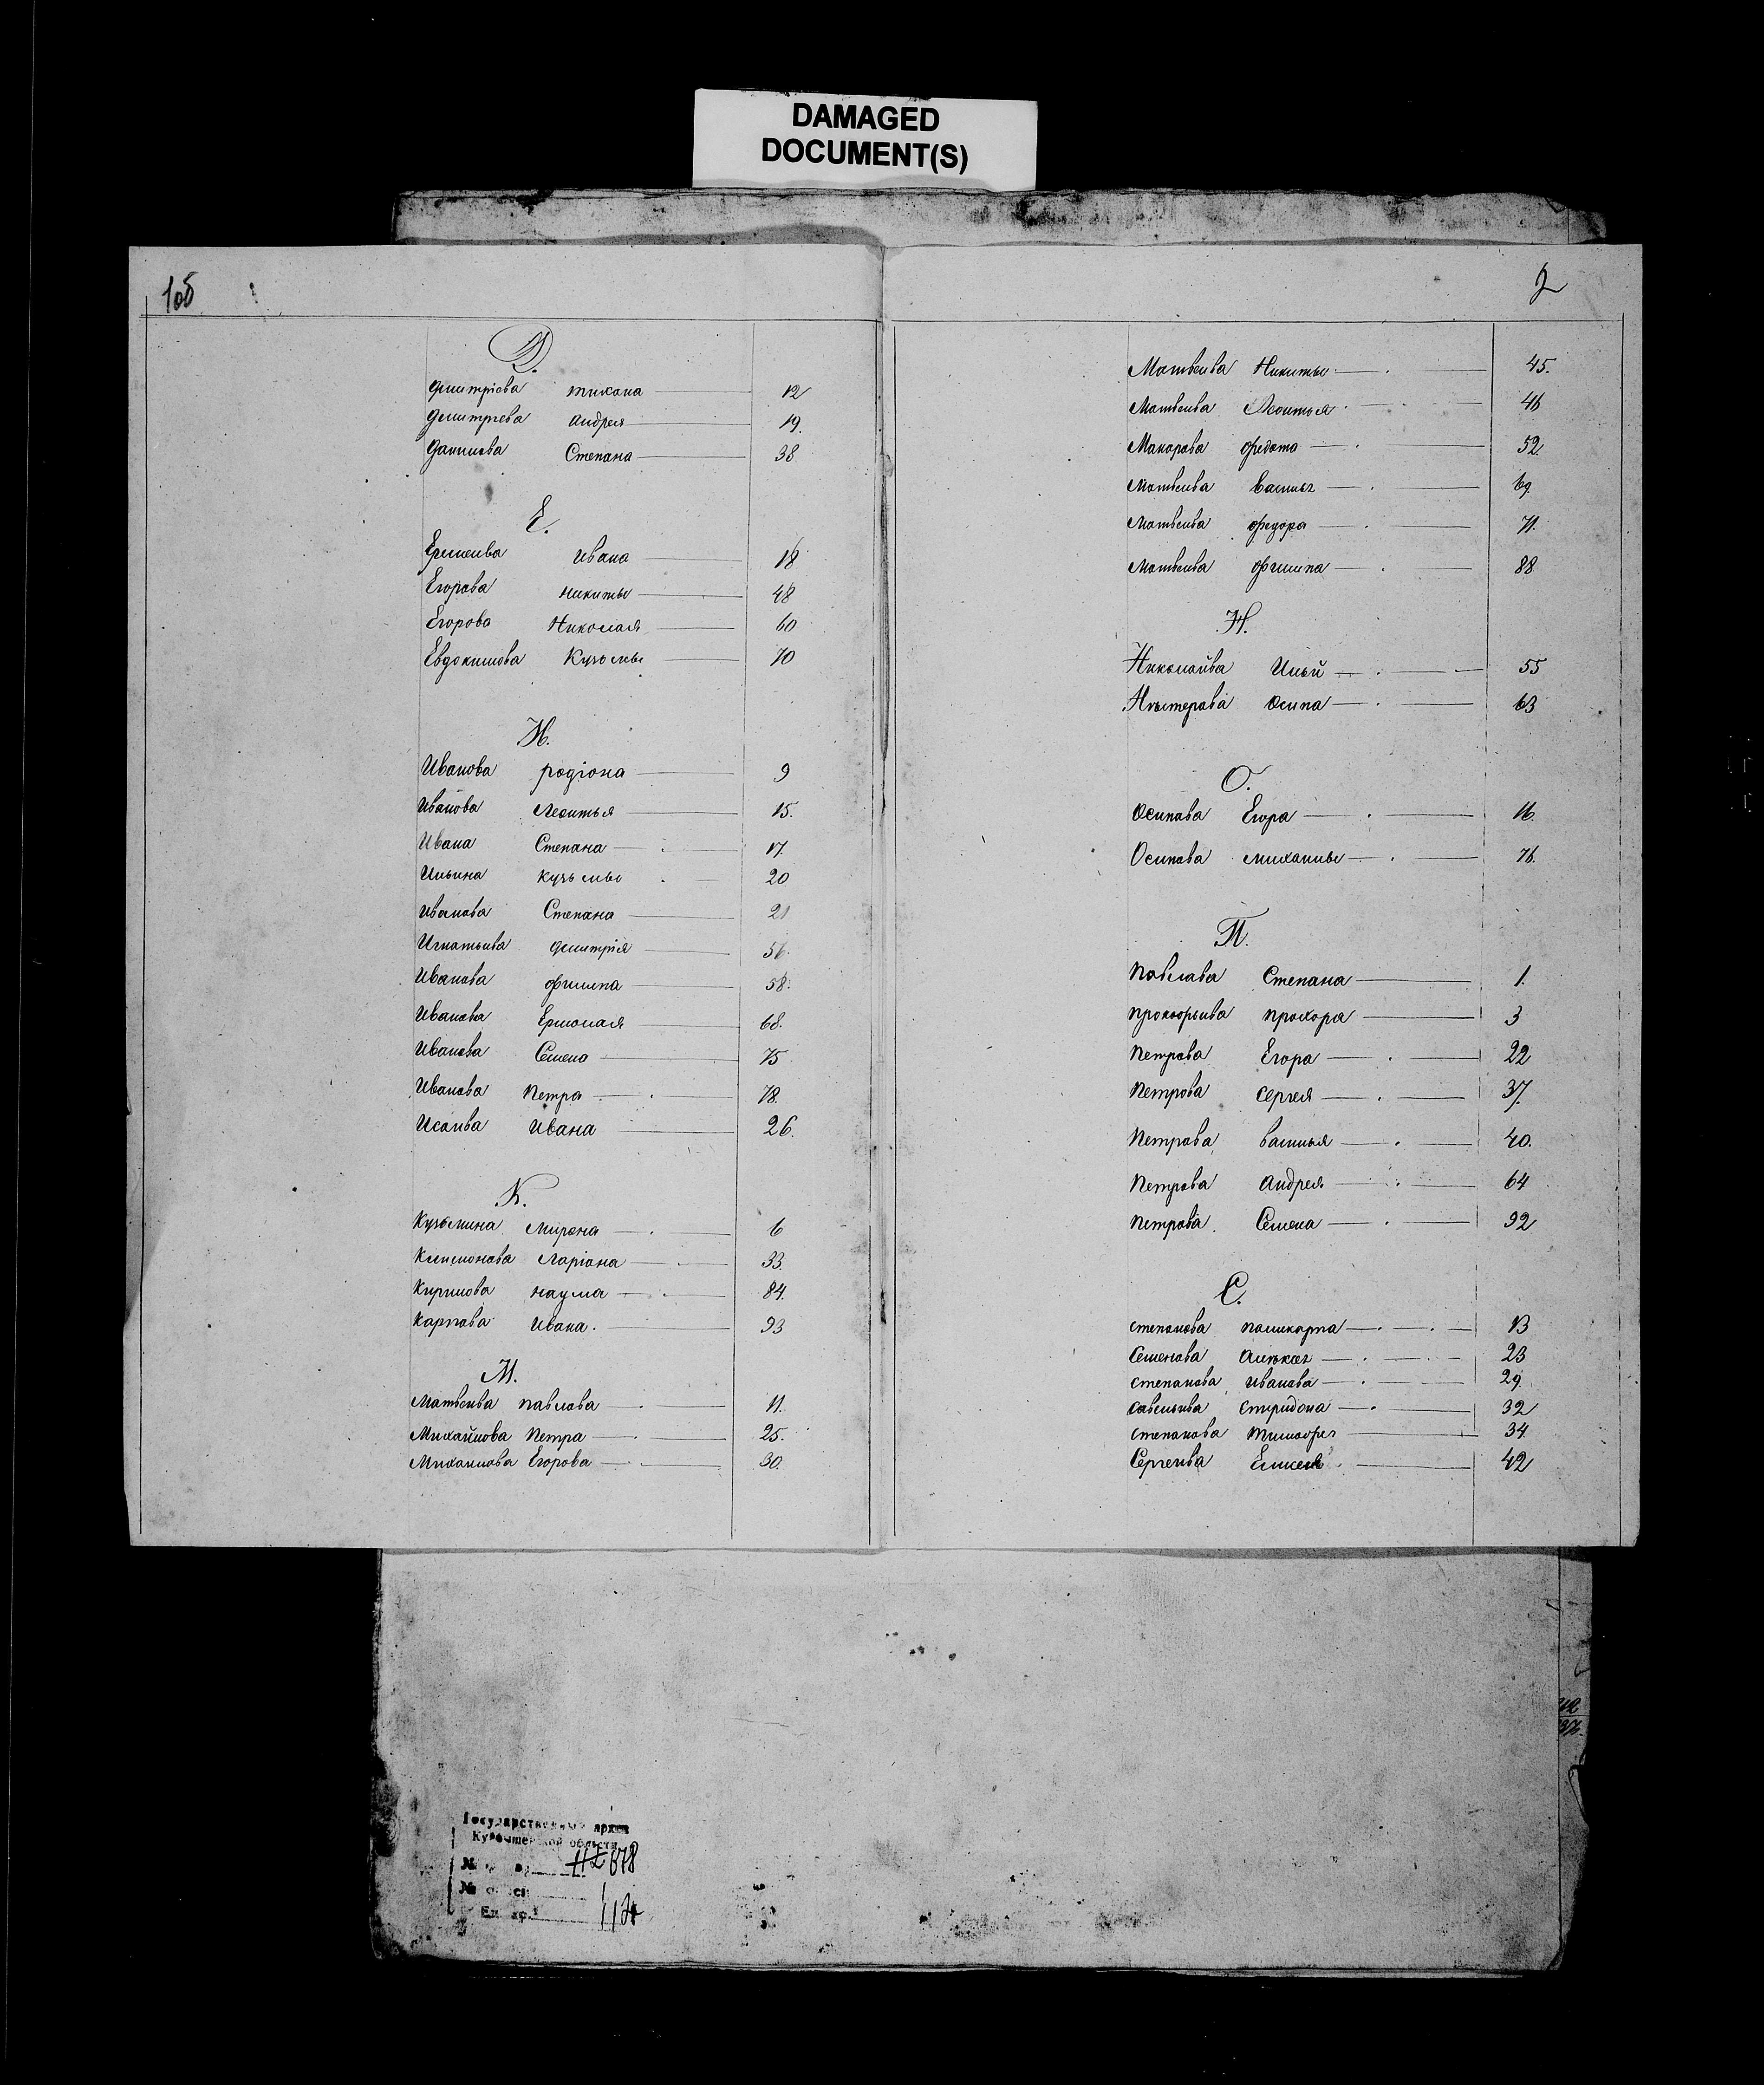 DAMAGED
DOCUMENT(S)
Д.
Дмитріева тихона 12
Дмитрева андрея 19.
Данилова Степана 38
Е.
Еремеива ивана 18
Егорова никиты 48
Егорова Николая 60
Евдокимова Кузьмы 70
И.
Иванова родіона 9
Иванова Леонтья 15.
Ивана Степана 17.
Ильина кузьмы 20
Иванова Степана 21
Игнатьива дмитрія 56.
Иванова филипа 58.
Иванова Ермолая 68.
Иванова Семена 75
Иванова Петра 78.
Исаива ивана 26.
К.
Кузьмина Мирона 6
Климонова Ларіона 33.
Кирилова наума 84.
Карпова Ивана. 93
М.
Матвеива павлова 11.
Михайлова Петра 25.
Михаилова Егорова 30.
2
Матвеива Никиты 45.
Матвеива Леонтья 46
Макарова федота 52.
Матвеива Василья 69.
Матвеива федора 71.
Матвеива филипа 88
Н.
Николайва Ильи 55
Нестерова Осипа 63
О.
Осипова Егора 16.
Осипова михаилы 76.
П.
Павлава Степана 1.
прокофьива прохора 3
петрова Егора 22
Петрова Сергея 37.
Петрова василья 40.
Петрова андрея 64
петрова Семена 92
С.
степанова паликарпа 13
Семенова 23
степанова иванова 29.
Савельива Спиридона 32
степанова тимофея 34.
Сергеива 42
Государственный архив
Куйбышевской области
678